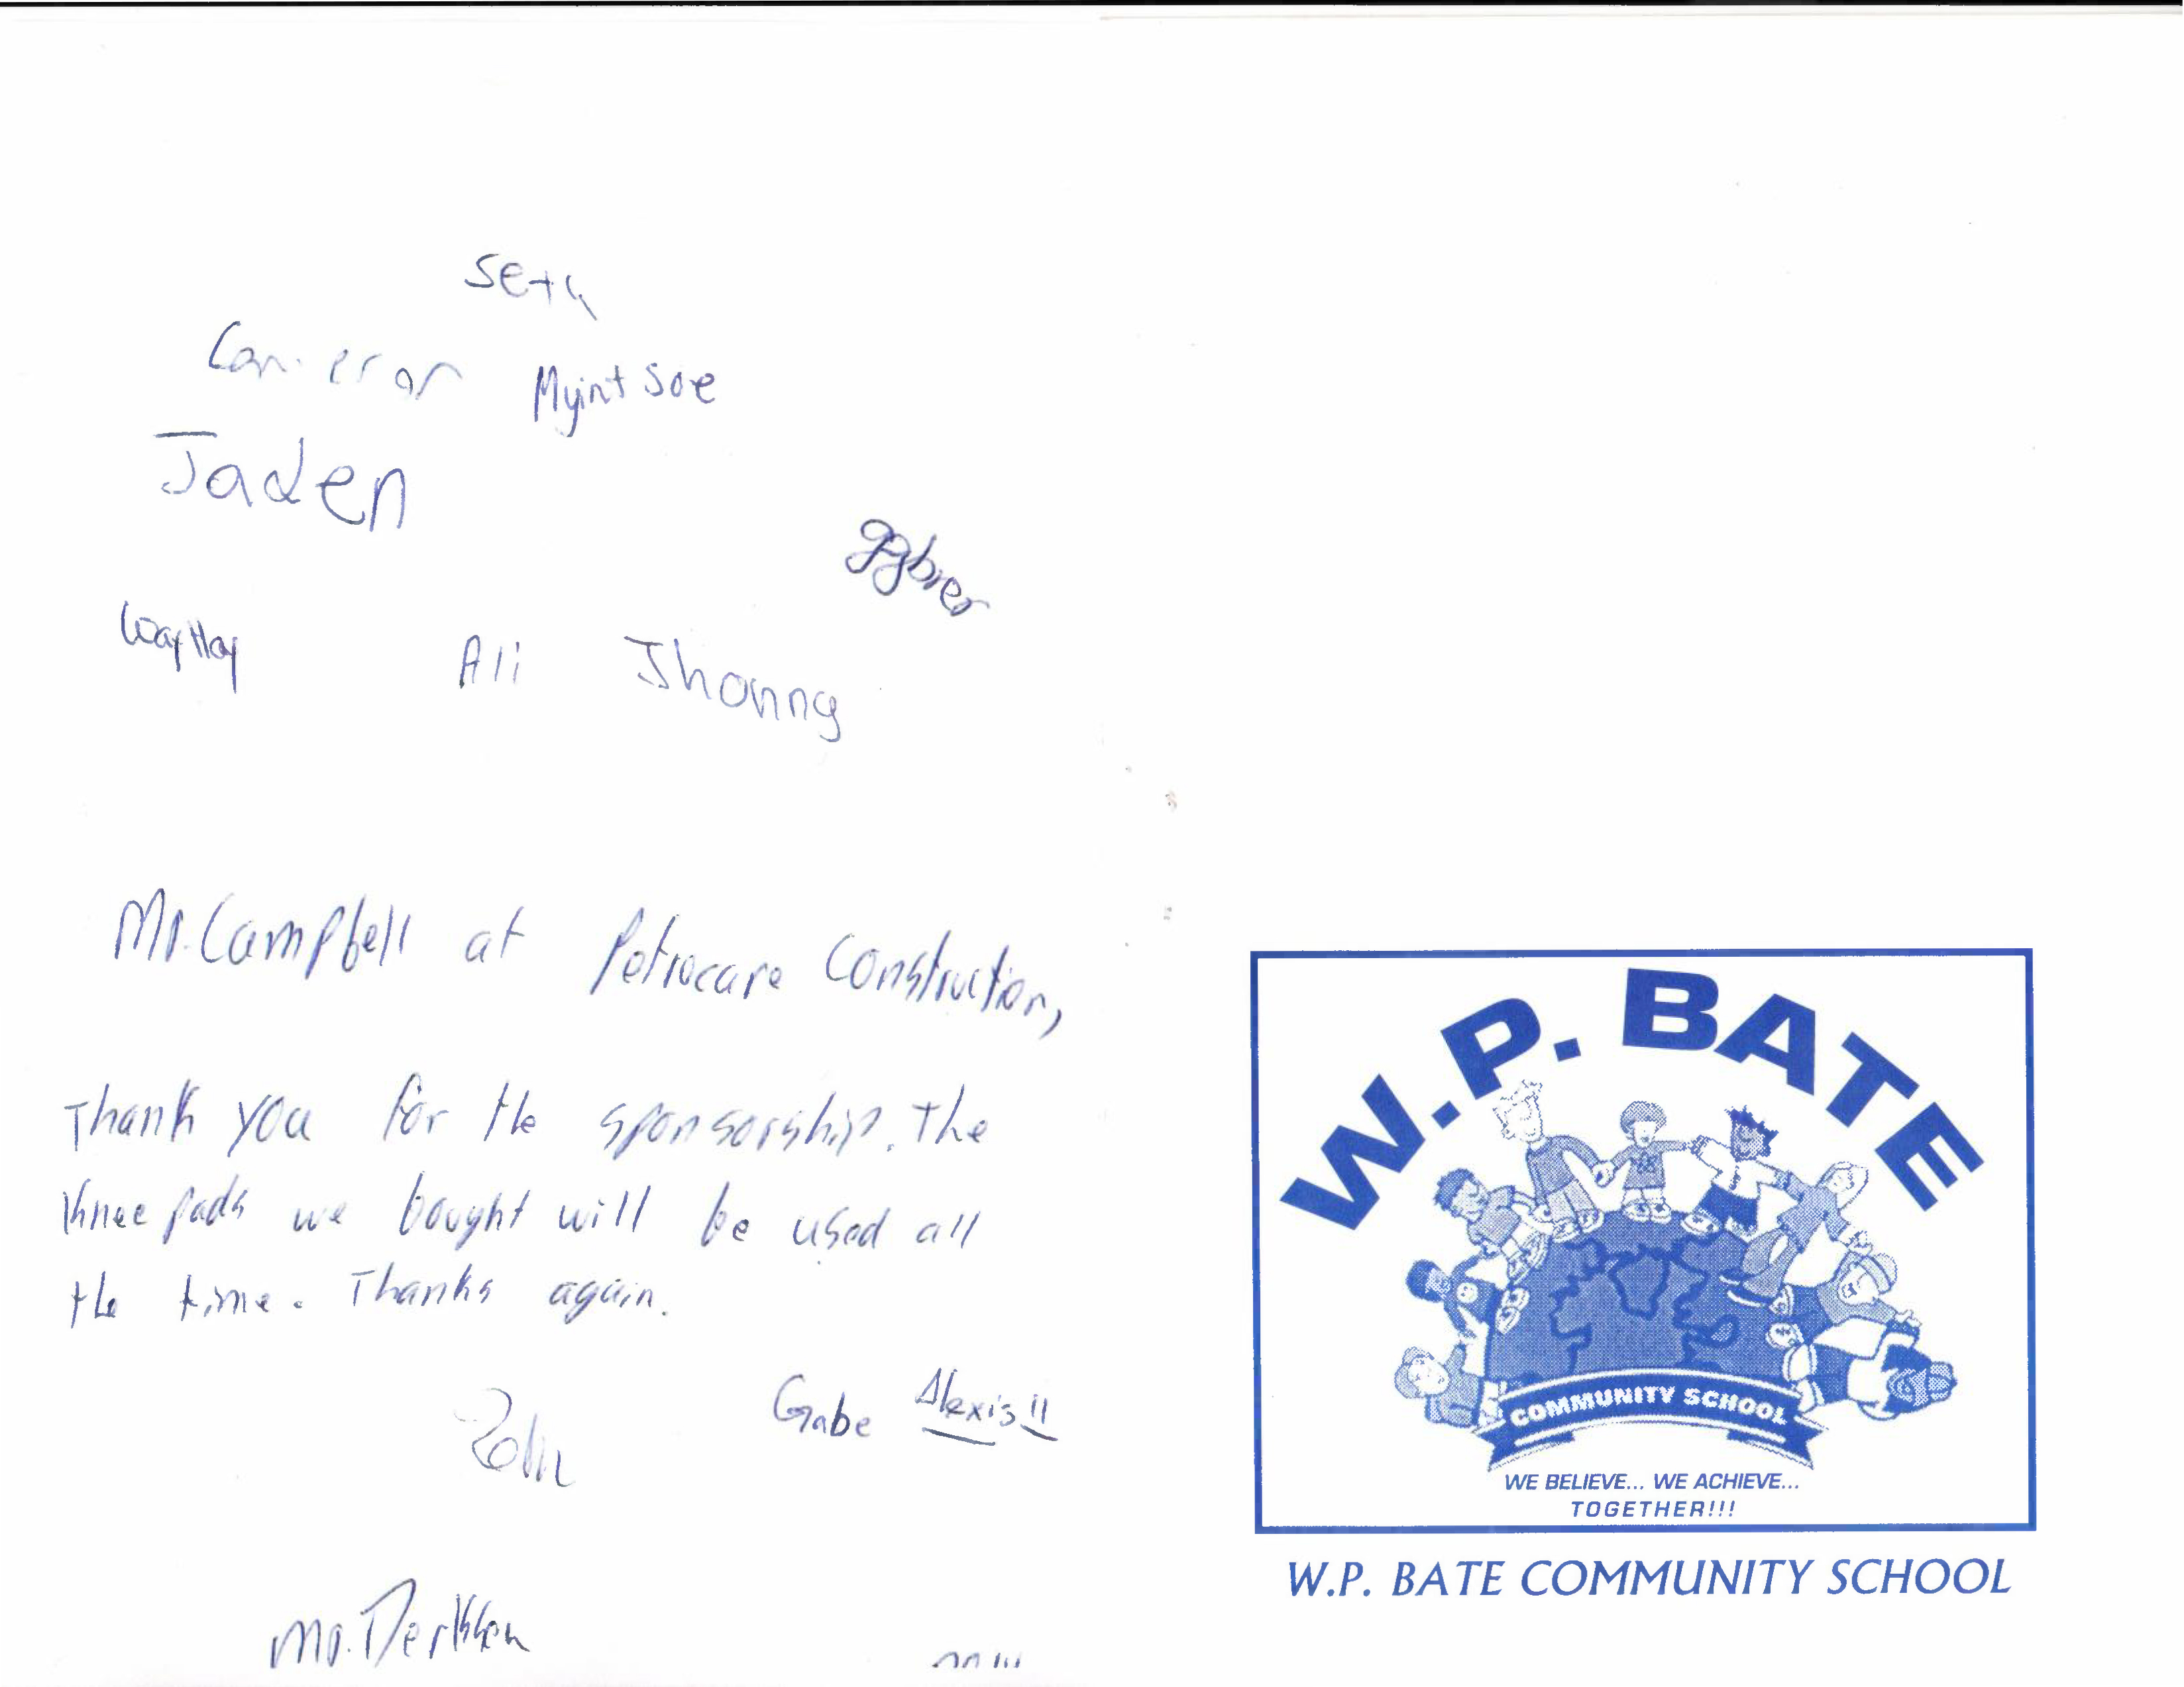 Seth
Cameron
Myint Soe
Jaden
Ali
Jhonny
Mr. Campbell at Petrocare Construction,
Thank you for the sponsorship. The
Knee pads we bought will be used all
the time. Thanks again.
Gabe Alexis!!
Mr. Derksen
W.P. BATE
COMMUNITY SCHOOL
WE BELIEVE... WE ACHIEVE...
TOGETHER!!!
W.P. BATE COMMUNITY SCHOOL